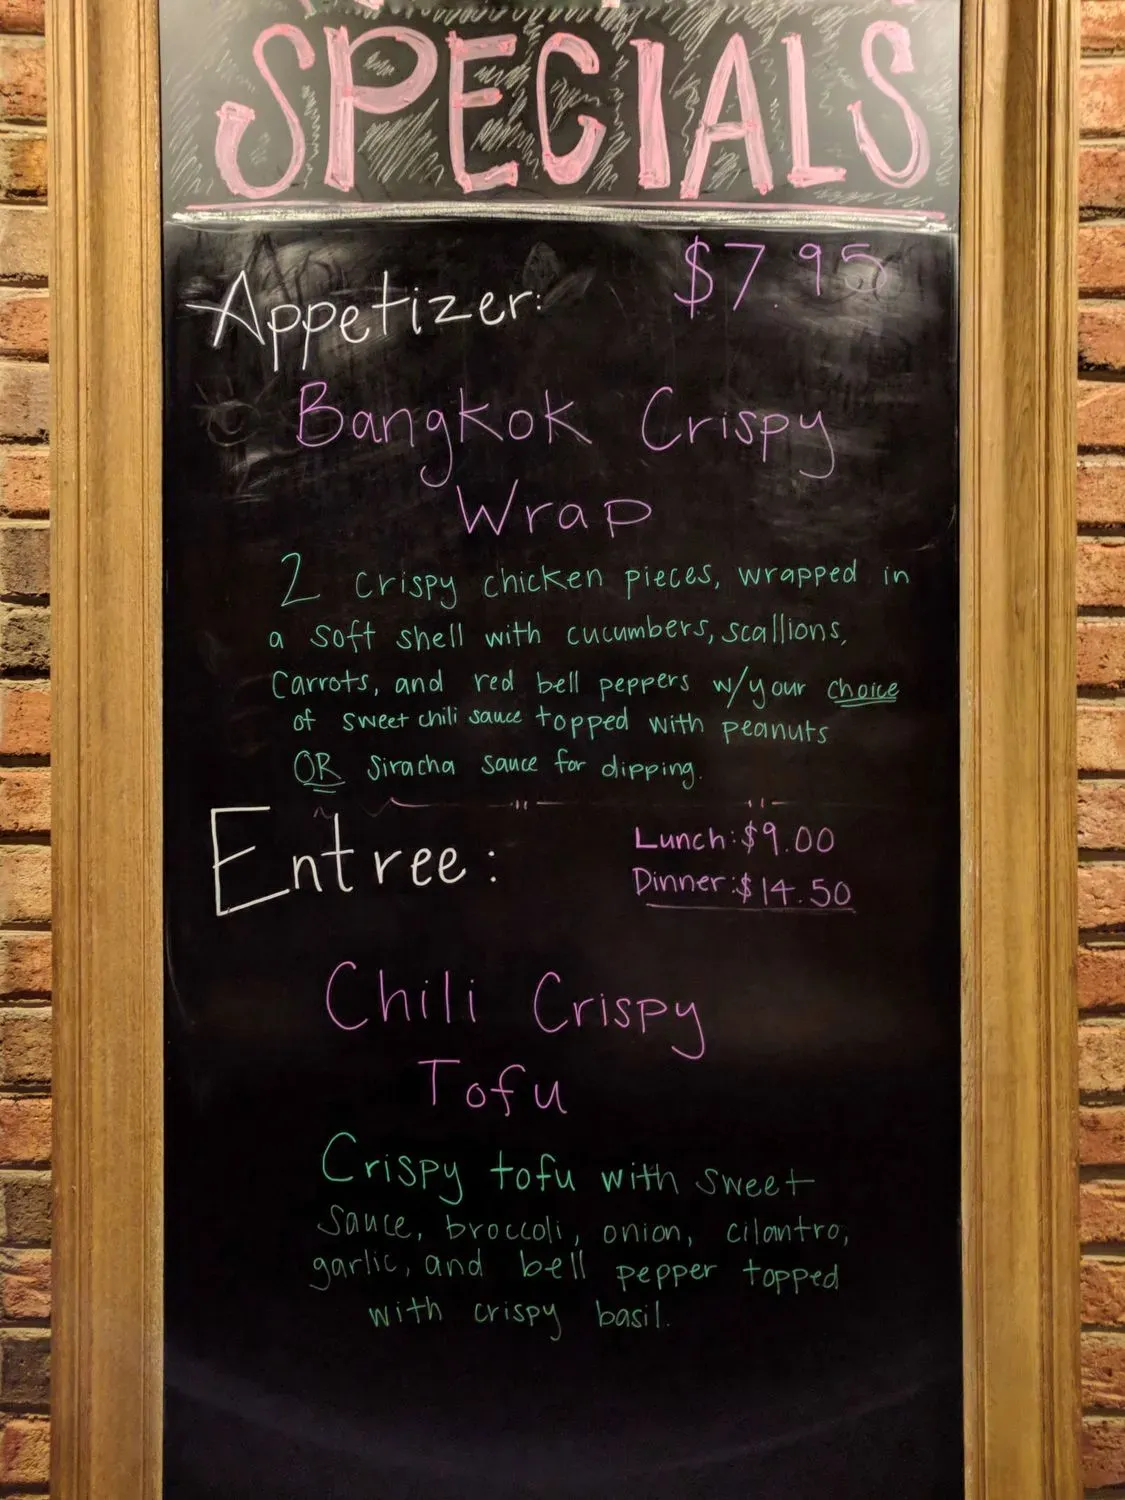 SPECIALS
Appetizer:
$7.95
Bangkok Crispy
Wrap
2 crispy chicken pieces, wrapped in
a soft shell with cucumbers, scallions,
Carrots, and red bell peppers w/your choice
of sweet chili sauce topped with peanuts
OR Siracha sauce for dipping.
Entree:
Lunch:$9.00
Dinner:$14.50
Chili Crispy
Tofu
Crispy tofu with sweet
sauce, broccoli, onion, cilantro,
garlic, and bell pepper topped
with crispy basil.